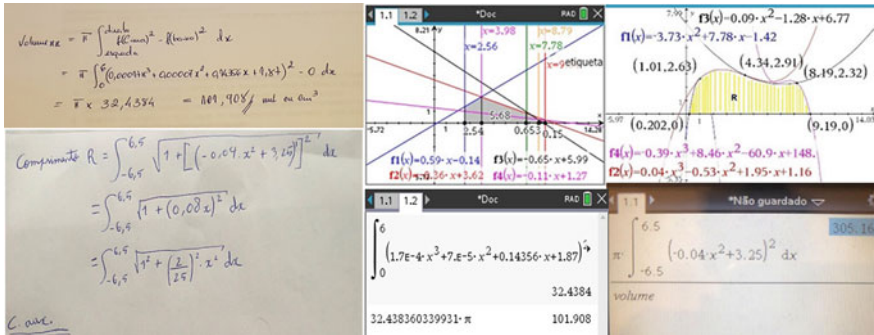 Volume xx = π ∫ direita esquerda f(cima)² - f(baixo)² dx
= π ∫₀⁶ (0,00017x³+0,00007x²+0,14356x+1,87)² - 0 dx
= π x 32,4384 = 101,908 ou cm³
Comprimento R = ∫₋₆,₅⁶,⁵ √1+[(-0,04x²+3,25)']² dx
= ∫₋₆,₅⁶,⁵ √1+(0,08x)² dx
= ∫₋₆,₅⁶,⁵ √1²+(2/25)²·x² dx
C. aux.
1.1 1.2 *Doc RAD
8.21 y
x=3.98
x=8.79
x=2.56
x=7.78
x=9
etiqueta
5.68
-5.72
2.54
0.653
0.15
14.28
f1(x)=0.59·x-0.14
f3(x)=-0.65·x+5.99
f2(x)=-0.36·x+3.62
f4(x)=-0.11·x+1.27
7.99 y
f3(x)=0.09·x²-1.28·x+6.77
f1(x)=-3.73·x²+7.78·x-1.42
(1.01,2.63)
(4.34,2.91)
(8.19,2.32)
R
-5.97
(0.202,0)
1
(9.19,0)
14.03
f4(x)=-0.39·x³+8.46·x²-60.9·x+148.
f2(x)=0.04·x³-0.53·x²+1.95·x+1.16
1.1 1.2 *Doc RAD
∫₀⁶ (1.7E-4·x³+7.E-5·x²+0.14356·x+1.87)²
32.4384
32.438360339931·π
101.908
1.1 *Não guardado
305.16
π·∫₋₆.₅⁶.⁵ (-0.04·x²+3.25)² dx
volume